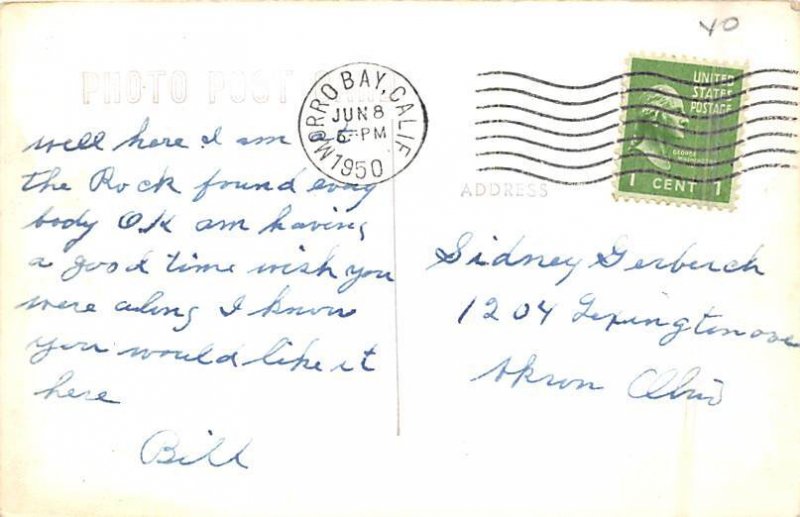 YO
PHOTO POST CARD
MORRO BAY, CALIF.
JUN 8
6-PM
1950
UNITED
STATES
POSTAGE
GEORGE
WASHINGTON
1 CENT 1
ADDRESS
well here I am at
the Rock found evry
body OK am having
a good time wish you
were along I know
you would like it
here
Bill
Sidney Gerberch
1204 Lexington ave
Akron Ohio